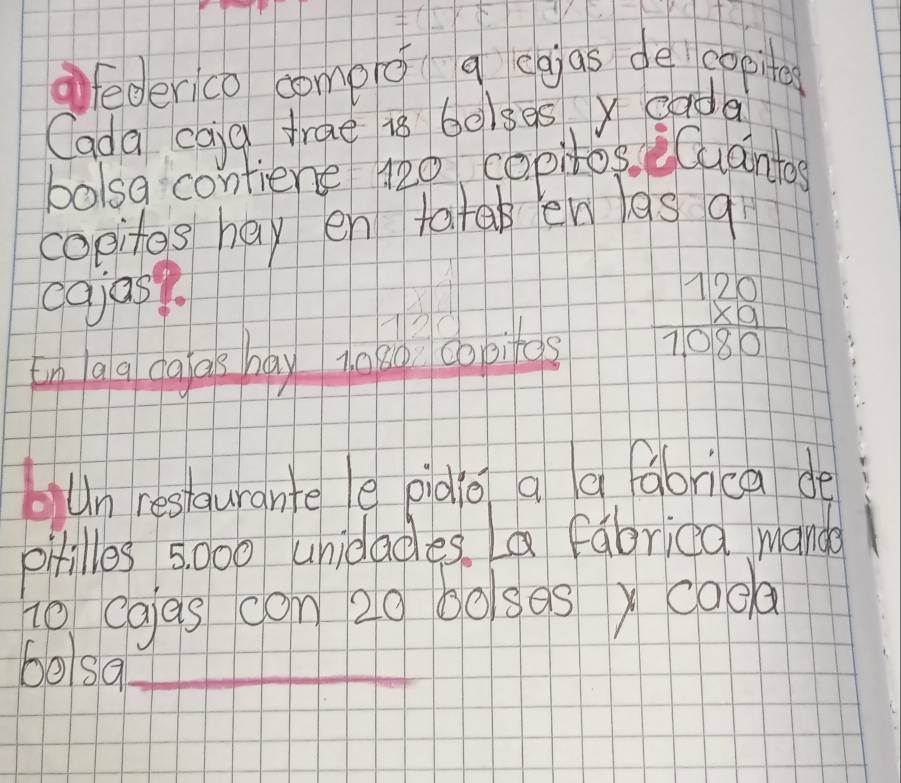 a) Federico compró 9 cajas de copitos
Cada caja trae 18 bolsas y cada
bolsa contiene 120 copitos. ¿Cuántos
copitos hay en total en las 9
cajas?
120
x9
1.080
En la 9 cajas hay 1.080 copitos
b) Un restaurante le pidió a la fábrica de
pitillos 5.000 unidades. La fábrica mandó
10 cajas con 20 bolsas y cada
bolsa